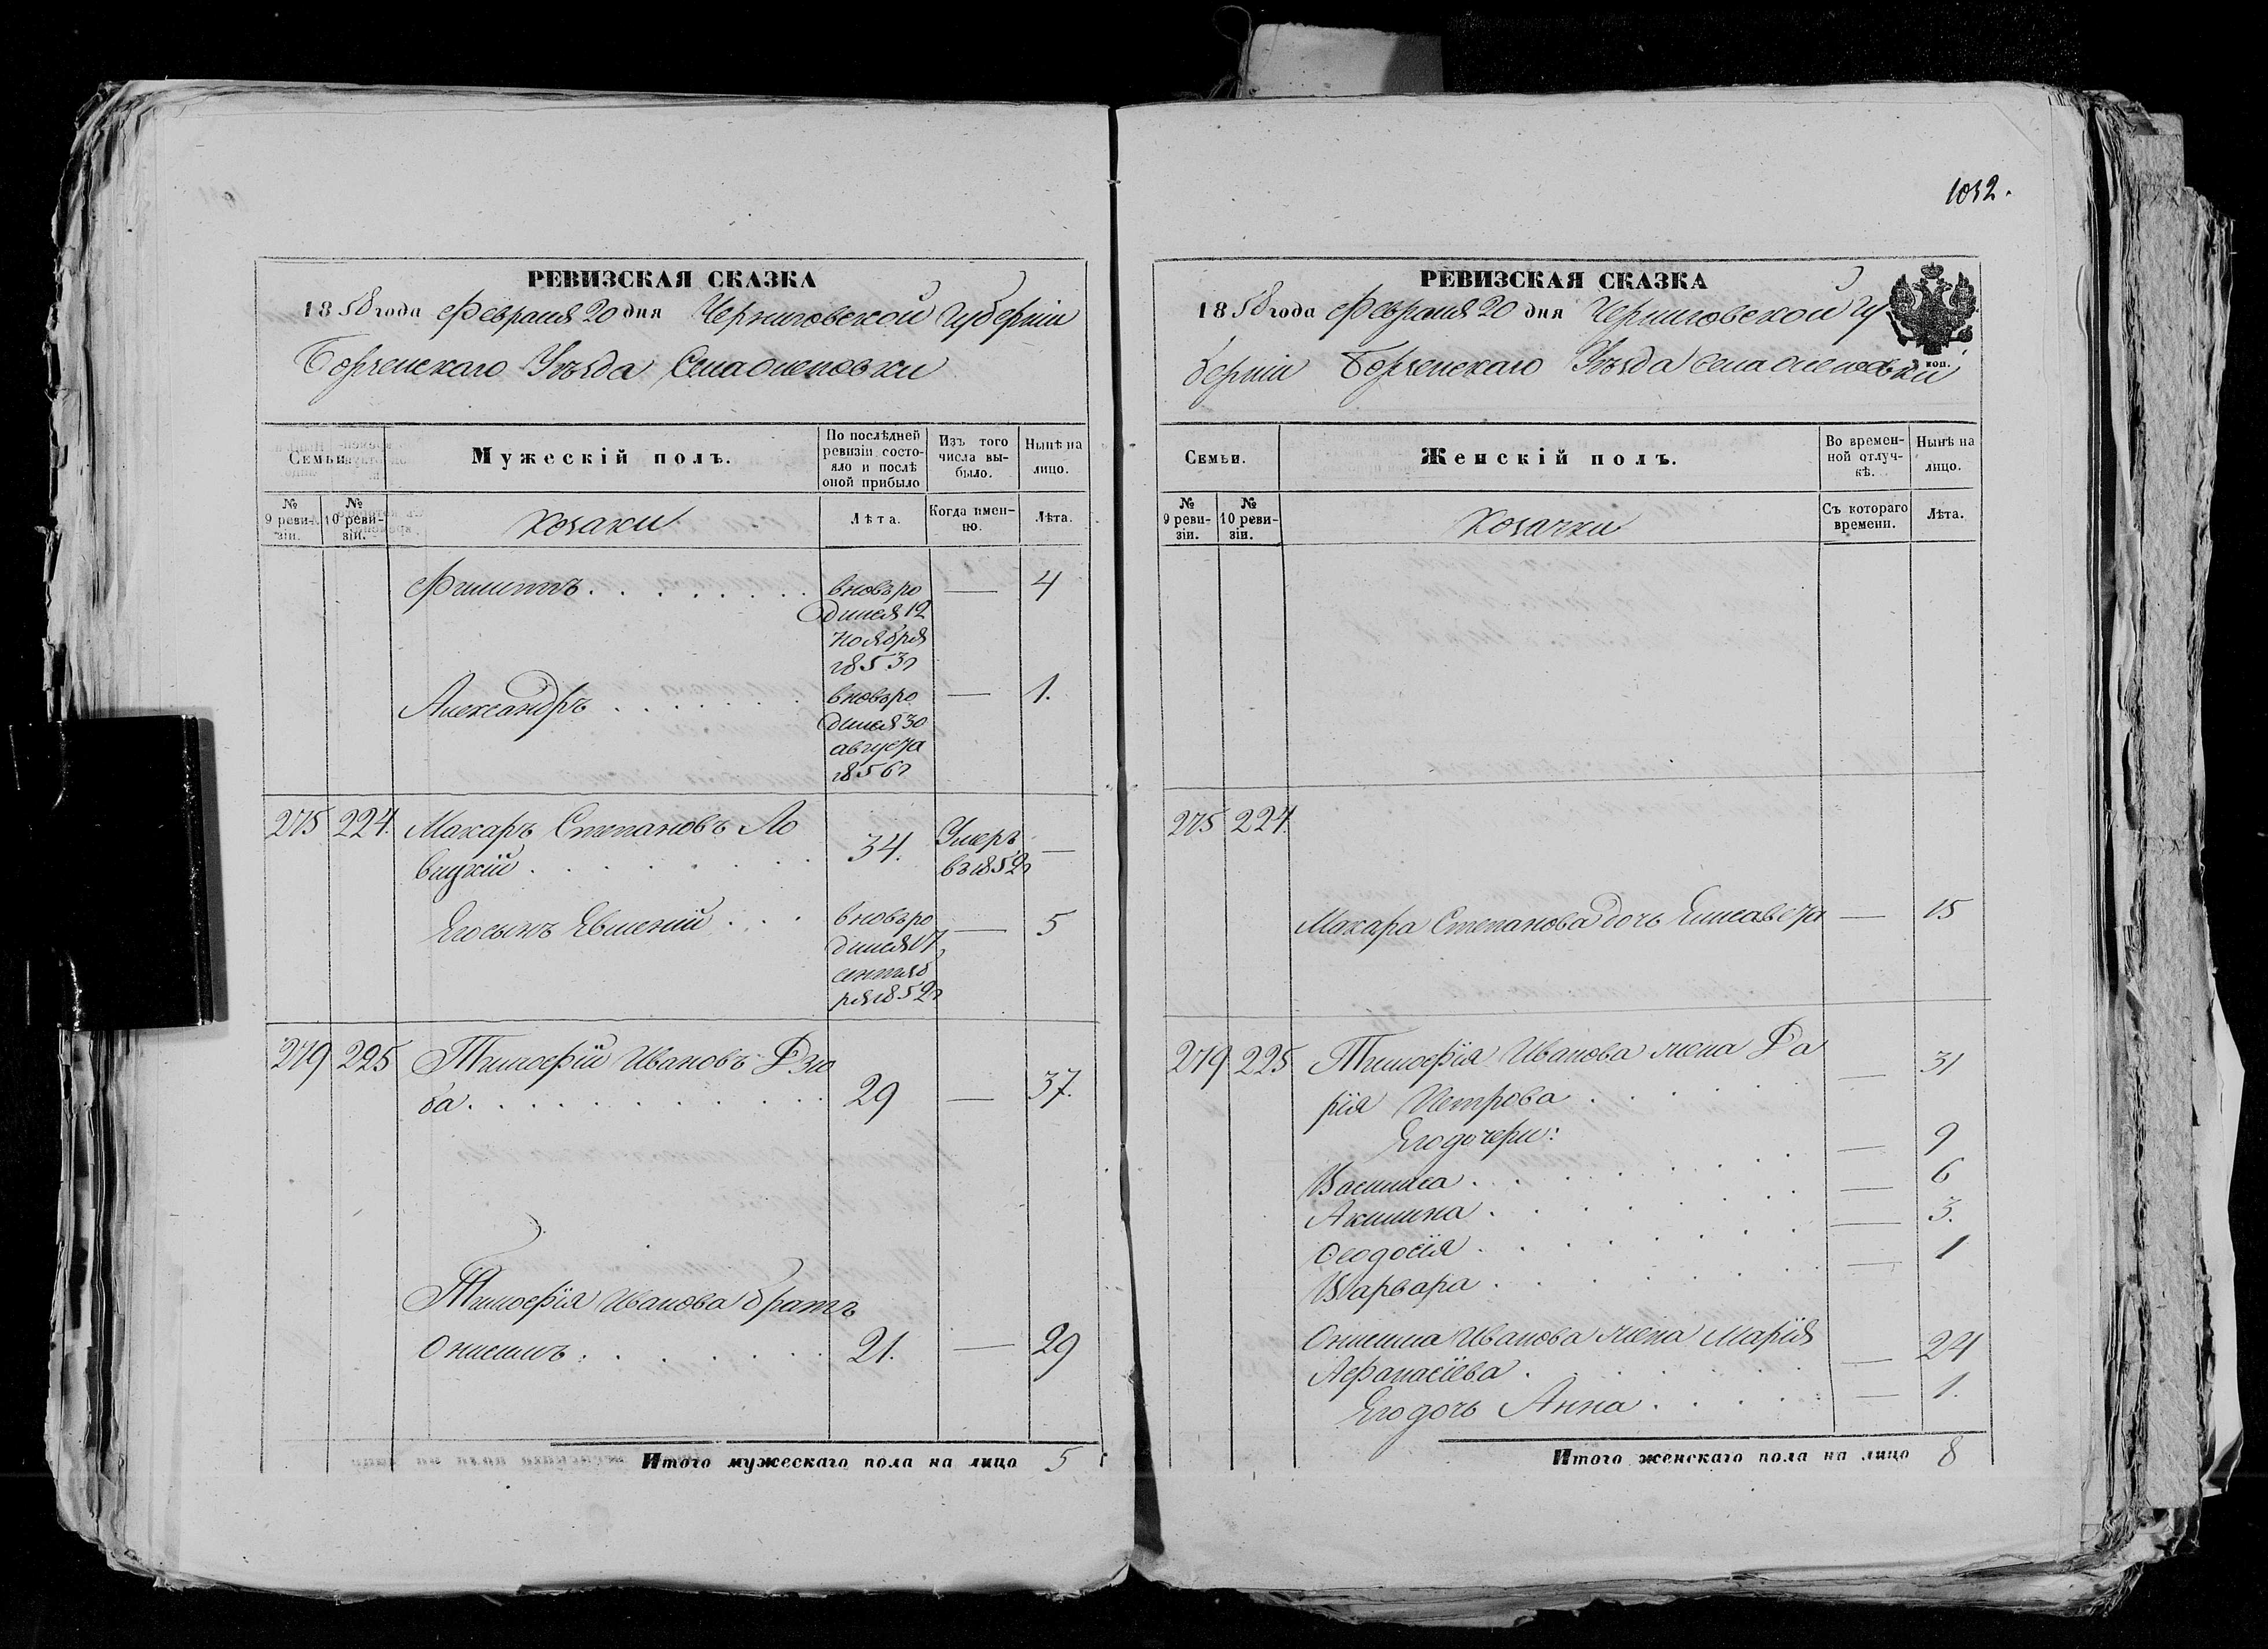 1032.
РЕВИЗСКАЯ СКАЗКА
1858 года Февраля 20 дня Черниговской губерніи
Борзенскаго Уѣзда Села Оленовки
Семьи.
Мужескій полъ.
По послѣдней ревизіи состояло и послѣ оной прибыло
Изъ того числа выбыло.
Нынѣ на лицо.
№ 9 ревизіи.
№ 10 ревизіи.
Козаки
Лѣта.
Когда именно.
Лѣта.
Филиппъ . . . . . . . . вновь ро — 4
дился 12
Ноября
1853 г
Александръ . . . . . . . вновь ро — 1.
дился 30
августа
1856 г
275 224. Макаръ Степановъ Ло 34. Умеръ —
вицкій . . . . . . . . въ 1852 г
Его сынъ Евмений . . . вновь ро — 5
дился 17
сентяб
ря 1852 г
279 225 Тимофѣй Ивановъ Дзю
ба . . . . . . . . . . . . 29 — 37.
Тимофѣя Иванова братъ
Онисимъ . . . . . . . . 21. — 29
Итого мужескаго пола на лицо 5
РЕВИЗСКАЯ СКАЗКА
1858 года Февраля 20 дня Черниговской гу
берніи Борзенскаго Уѣзда села Оленовки
коп.
Семьи.
Женскій полъ.
Во временной отлучкѣ.
Нынѣ на лицо.
№ 9 ревизіи.
№ 10 ревизіи.
Козачки
Съ котораго времени.
Лѣта.
275 224.
Макара Степанова дочь Елисавета — 15
279 225 Тимофѣя Иванова жена Да — 31
рія Петрова . . . . .
Его дочери:
Василиса . . . . . . . . — 9
Акилина . . . . . . . . — 6
Ѳеодосія . . . . . . . . — 3.
Варвара . . . . . . . . — 1
Онисима Иванова жена Марія
Афанасіева . . . . . . — 24
Его дочь Анна . . . . . — 1.
Итого женскаго пола на лицо 8